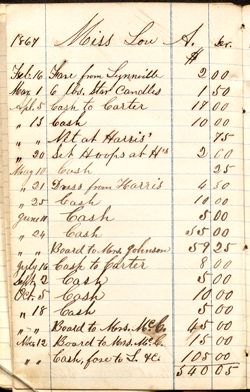 1867 Miss Lou A. Dr.
$
Feb. 16 Fare from Lynnville 2 00
Mar 1 6 lbs. Star Candles 1 50
Apl. 5 Cash to Carter 17 00
" 15 Cash 10 00
" " At Harris' 75
" 20 Set Hoops at H's 2 00
May 10 Cash 25
" 21 Dress from Harris 4 50
" 25 Cash 10 00
June 10 Cash 5 00
" 24 Cash 55 00
" " Board to Mrs. Johnson 59 25
July 16 Cash to Carter 8 00
Sept 2 Cash 5 00
Oct. 5 Cash 10 00
" 18 Cash 5 00
" " Board to Mrs. McC. 45 00
Nov. 12 Board to Mrs. McC. 15 00
" " Cash, to L. &c. 105 00
540 05